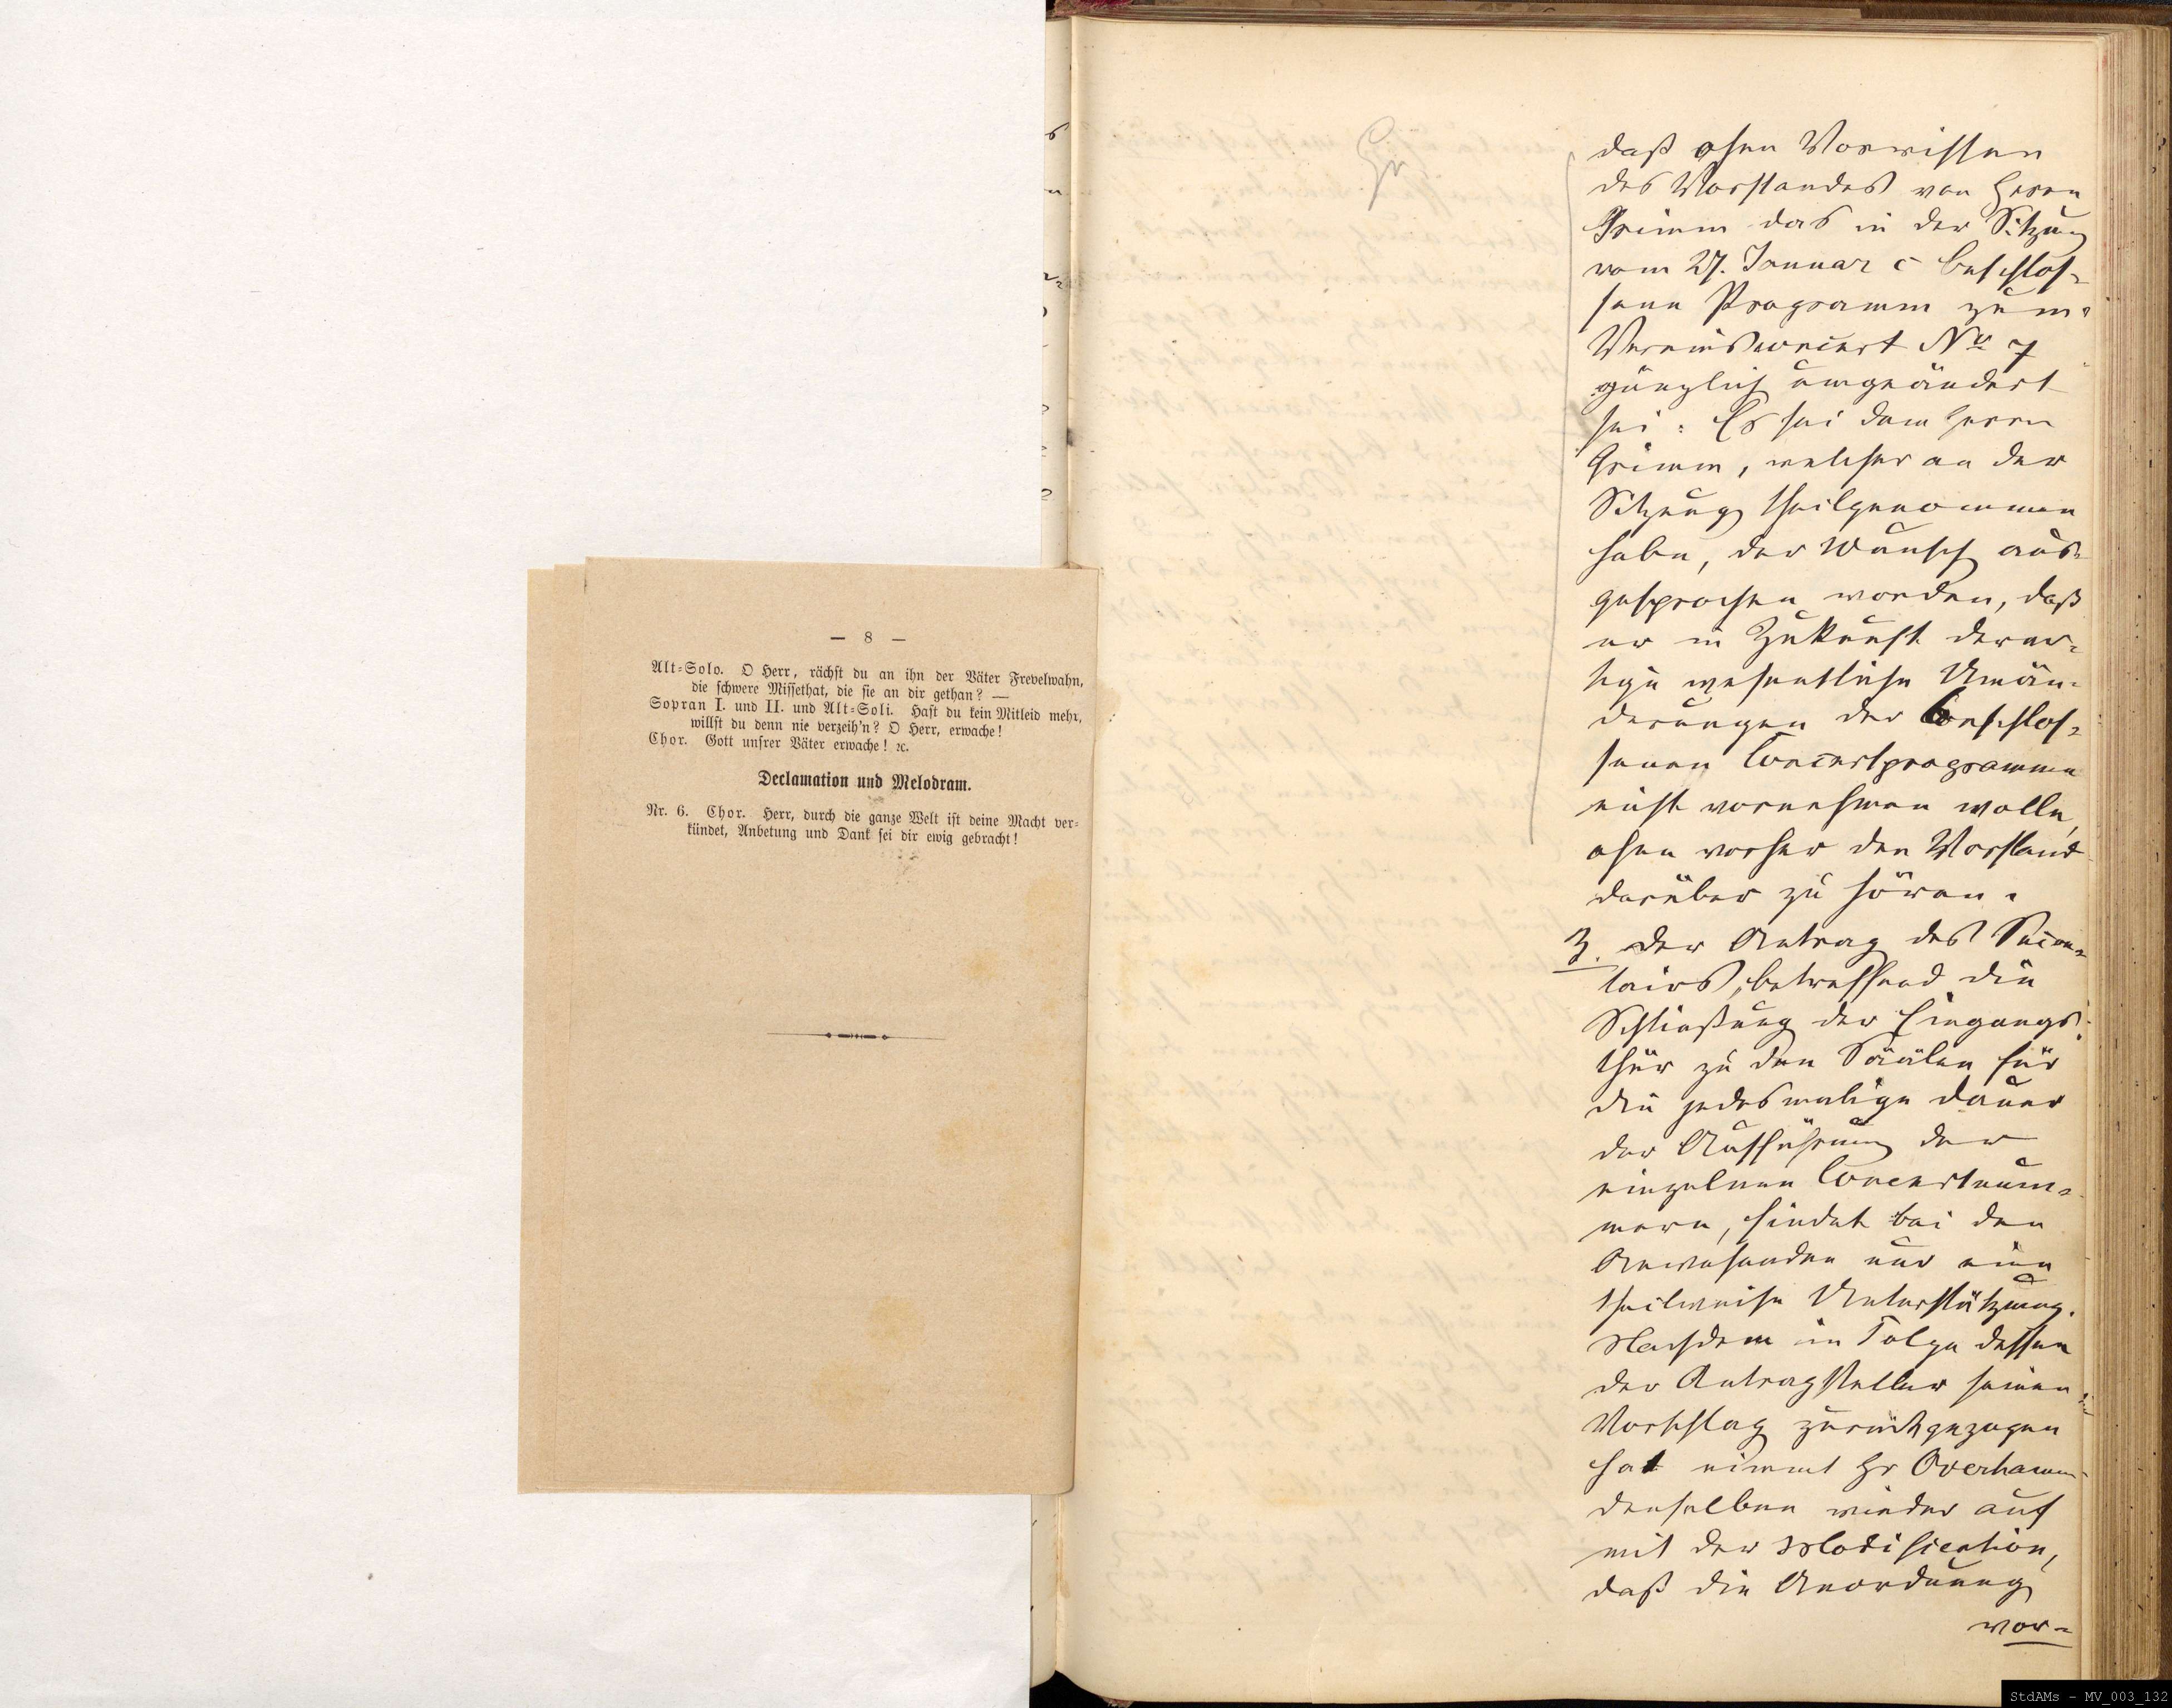 — 8 —
Alt-Solo. O Herr, rächst du an ihn der Väter Frevelwahn,
die schwere Missethat, die sie an dir gethan? —
Sopran I. und II. und Alt-Soli. Hast du kein Mitleid mehr,
willst du denn nie verzeih'n? O Herr, erwache!
Chor. Gott unsrer Väter erwache! ꝛc.
Declamation und Melodram.
Nr. 6. Chor. Herr, durch die ganze Welt ist deine Macht ver-
kündet, Anbetung und Dank sei dir ewig gebracht!
Gr
daß ohne Vorwissen
des Vorstandes von Herrn
Grimm das in der Sitzung
vom 27. Januar c beschlos-
sene Programm zum
Vereinsconcert No 7
gänzlich umgeändert
sei. Es sei dem Herrn
Grimm, welcher an der
Sitzung theilgenommen
habe, der Wunsch aus-
gesprochen worden, daß
er in Zukunft derar-
tige wesentliche Umän-
derungen der beschlos-
senen Concertprogramme
nicht vornehmen wolle,
ohne vorher den Vorstand
darüber zu hören.
3. Der Antrag des Secre-
tairs, betreffend die
Schließung der Eingangs-
thür zu den Säälen für
die jedesmalige Dauer
der Aufführung der
einzelnen Concertnum-
mern, findet bei den
Anwesenden nur eine
theilweise Unterstützung.
Nachdem in Folge dessen
der Antragsteller seinen
Vorschlag zurückgezogen
hat nimmt Hr Overhamm
denselben wieder auf
mit der Modification,
daß die Anordnung
vor-
StdAMs - MV_003_132